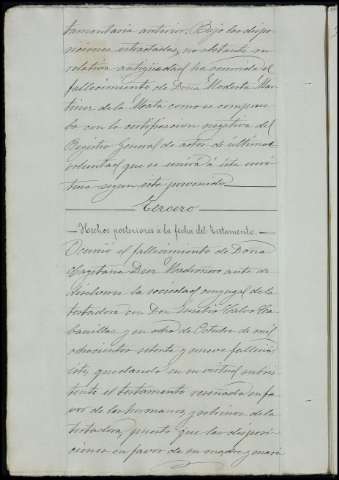 tamentaria anterior. Bajo las dispo-
siciones extractadas, no obstante su
relativa antigüedad ha ocurrido el
fallecimiento de Doña Modesta Mar-
tinez de la Mata como se comprue-
ba con la certificacion negativa del
Registro General de actos de última
voluntad que se unirá á esta
segun está prevenido
Tercero
Hechos posteriores á la fecha del testamento.
Ocurrió el fallecimiento de Doña
Cayetana antes de
disolverse la sociedad conyugal de la
testadora con Don Calvo
y en ocho de Octubre de mil
ochocientos setenta y nueve falleció
éste, quedando en su virtud subsis-
tente el testamento reseñado en fa-
vor de los hermanos y sobrinos de la
testadora, puesto que las disposi-
ciones en favor de su madre y marido